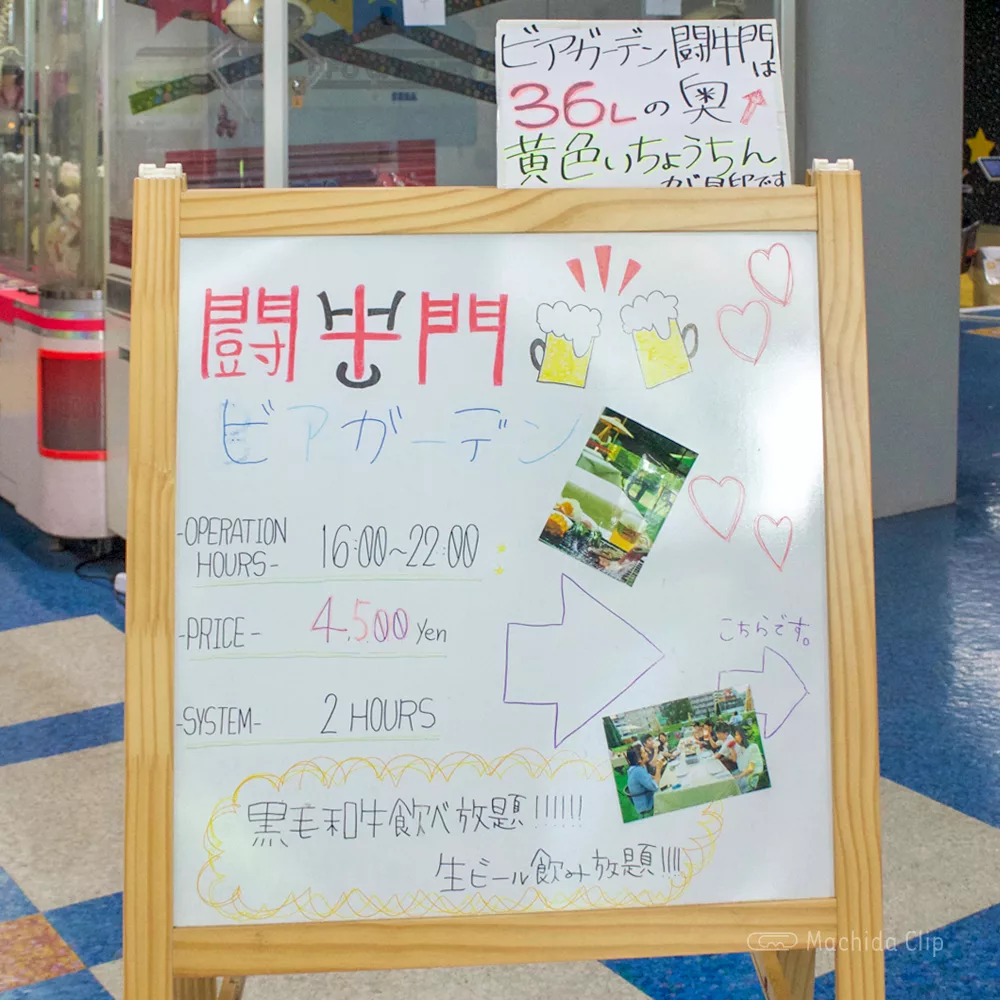 ビアガーデン闘牛門は
36Lの奥
黄色いちょうちん
が目印です
闘牛門
ビアガーデン
-OPERATION HOURS- 16:00~22:00
-PRICE- 4,500 Yen
こちらです。
-SYSTEM- 2 HOURS
黒毛和牛飲べ放題!!!!!!
生ビール飲み放題!!!!
SEGA
Machida Clip